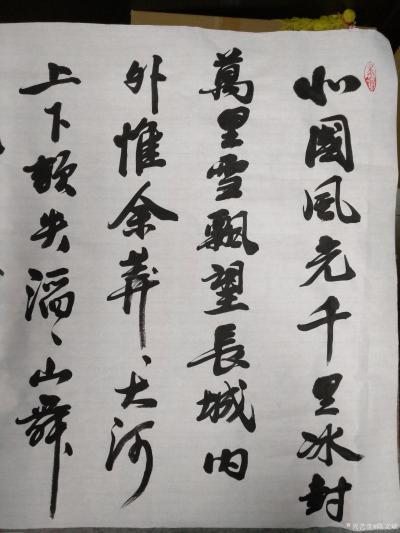 北國風光千里冰封
萬里雪飄望長城内
外惟余莽、大河
上下頓失滔、山舞